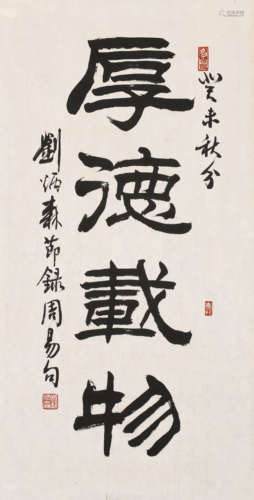 癸未秋分
厚德載物
劉炳森節録周易句